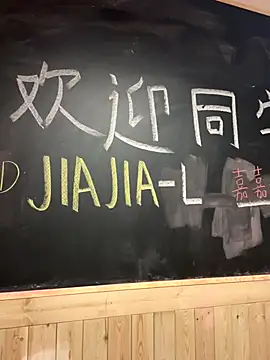 欢迎同
D JIAJIA-L 嘉嘉